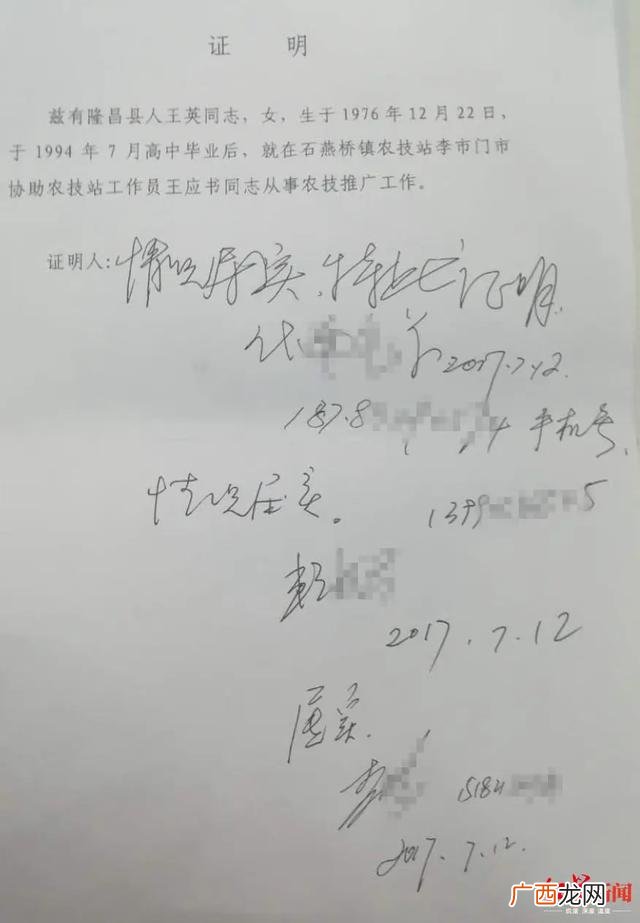 证 明
兹有隆昌县人王英同志，女，生于1976年12月22日，
于1994年7月高中毕业后，就在石燕桥镇农技站李市门市
协助农技站工作员王应书同志从事农技推广工作。
证明人：情况属实，特此证明
代 2017.7.12.
187.8 4 手机号
情况属实。 139 5
2017.7.12
属实.
李 15184
2017.7.12.
新闻
锐度 深度 温度
广西龙网